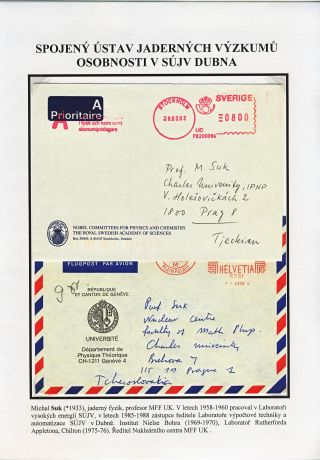 SPOJENÝ ÚSTAV JADERNÝCH VÝZKUMŮ
OSOBNOSTI V SÚJV DUBNA
A
Prioritaire
ekonomipristagare
STOCKHOLM
SVERIGE
0800
Prof. M. Suk
Charles University, IPNP
V. Holešovičkách 2
1800 Prag 8
Tjeckien
NOBEL COMMITTEES FOR PHYSICS AND CHEMISTRY
THE ROYAL SWEDISH ACADEMY OF SCIENCES
FLUGPOST PAR AVION
HELVETIA
RÉPUBLIQUE
ET CANTON DE GENÈVE
UNIVERSITÉ
Département de
Physique Théorique
CH-1211 Genève 4
Prof Suk
Nuclear Centre
Faculty of Math Phys.
Charles University
Prague
Tchecoslovakia
Michal Suk (*1933), jaderný fyzik, profesor MFF UK. V letech 1958-1960 pracoval v Laboratoři
vysokých energií SÚJV, v letech 1985-1988 zástupce ředitele Laboratoře výpočetní techniky a
automatizace SÚJV v Dubně. Institut Nielse Bohra (1969-1970), Laboratoř Rutherforda
Appletona, Chilton (1975-76). Ředitel Nukleárního centra MFF UK .